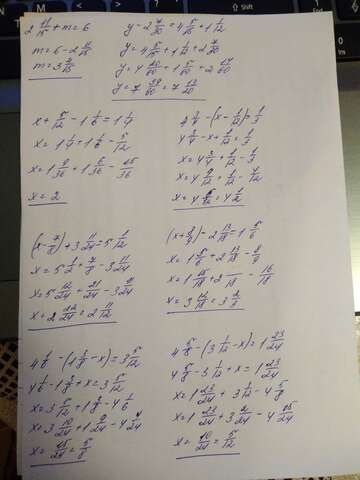 2 11/15 + m = 6
m = 6 - 2 11/15
m = 3 4/15
y - 2 7/30 = 4 5/15 + 1 1/12
y = 4 5/15 + 1 1/12 + 2 7/30
y = 4 20/60 + 1 5/60 + 2 14/60
y = 7 39/60 = 7 13/20
x + 5/12 - 1 1/6 = 1 1/4
x = 1 1/4 + 1 1/6 - 5/12
x = 1 9/36 + 1 6/36 - 15/36
x = 2
4 3/4 - (x - 1/12) = 1/3
4 3/4 - x + 1/12 = 1/3
x = 4 3/4 + 1/12 - 1/3
x = 4 9/12 + 1/12 - 4/12
x = 4 6/12 = 4 1/2
(x - 7/8) + 3 11/24 = 5 1/12
x = 5 1/2 + 7/8 - 3 11/24
x = 5 12/24 + 21/24 - 3 11/24
x = 2 22/24 = 2 11/12
(x + 8/9) - 2 13/18 = 1 5/6
x = 1 5/6 + 2 13/18 - 8/9
x = 1 15/18 + 2 /18 - 16/18
x = 3 12/18 = 3 2/3
4 1/6 - (1 3/8 - x) = 3 5/12
4 1/6 - 1 3/8 + x = 3 5/12
x = 3 5/12 + 1 3/8 - 4 1/6
x = 3 10/24 + 1 9/24 - 4 4/24
x = 15/24 = 5/8
4 5/8 - (3 1/12 - x) = 1 23/24
4 5/8 - 3 1/12 + x = 1 23/24
x = 1 23/24 + 3 1/12 - 4 5/8
x = 1 23/24 + 3 2/24 - 4 15/24
x = 10/24 = 5/12